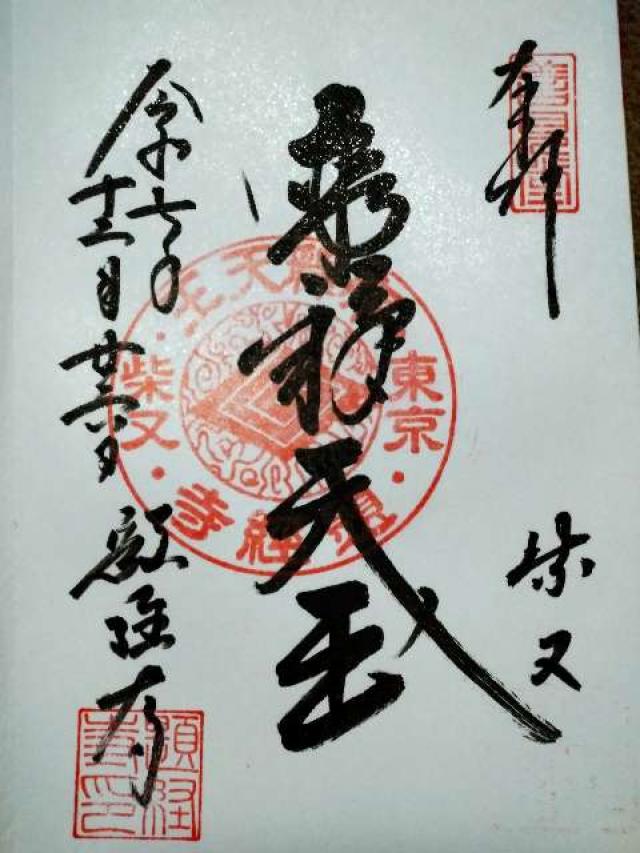 奉拝
柴又
帝釈天王
帝釈天王
東京
柴又
題経寺
令和七年
十二月
題経寺
題経
寺印